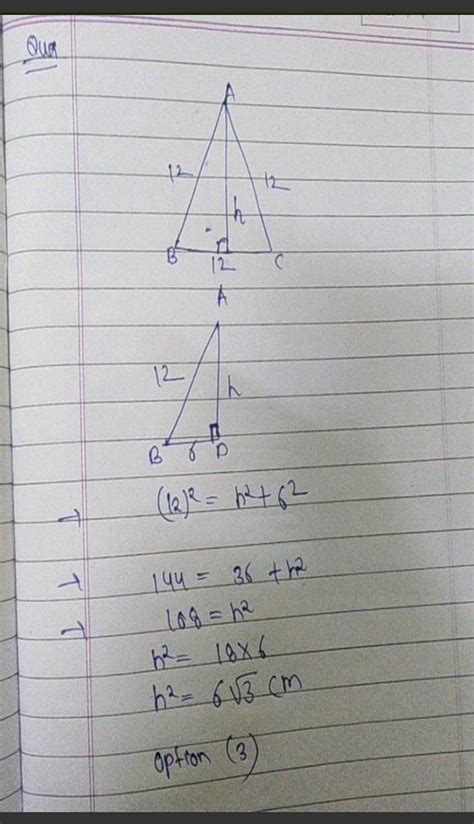 Que
A
12
12
h
B
12
C
A
12
h
B
6
D
→ (12)² = h²+6²
→ 144 = 36 + h²
→ 108 = h²
h² = 18×6
h² = 6√3 cm
option (3)